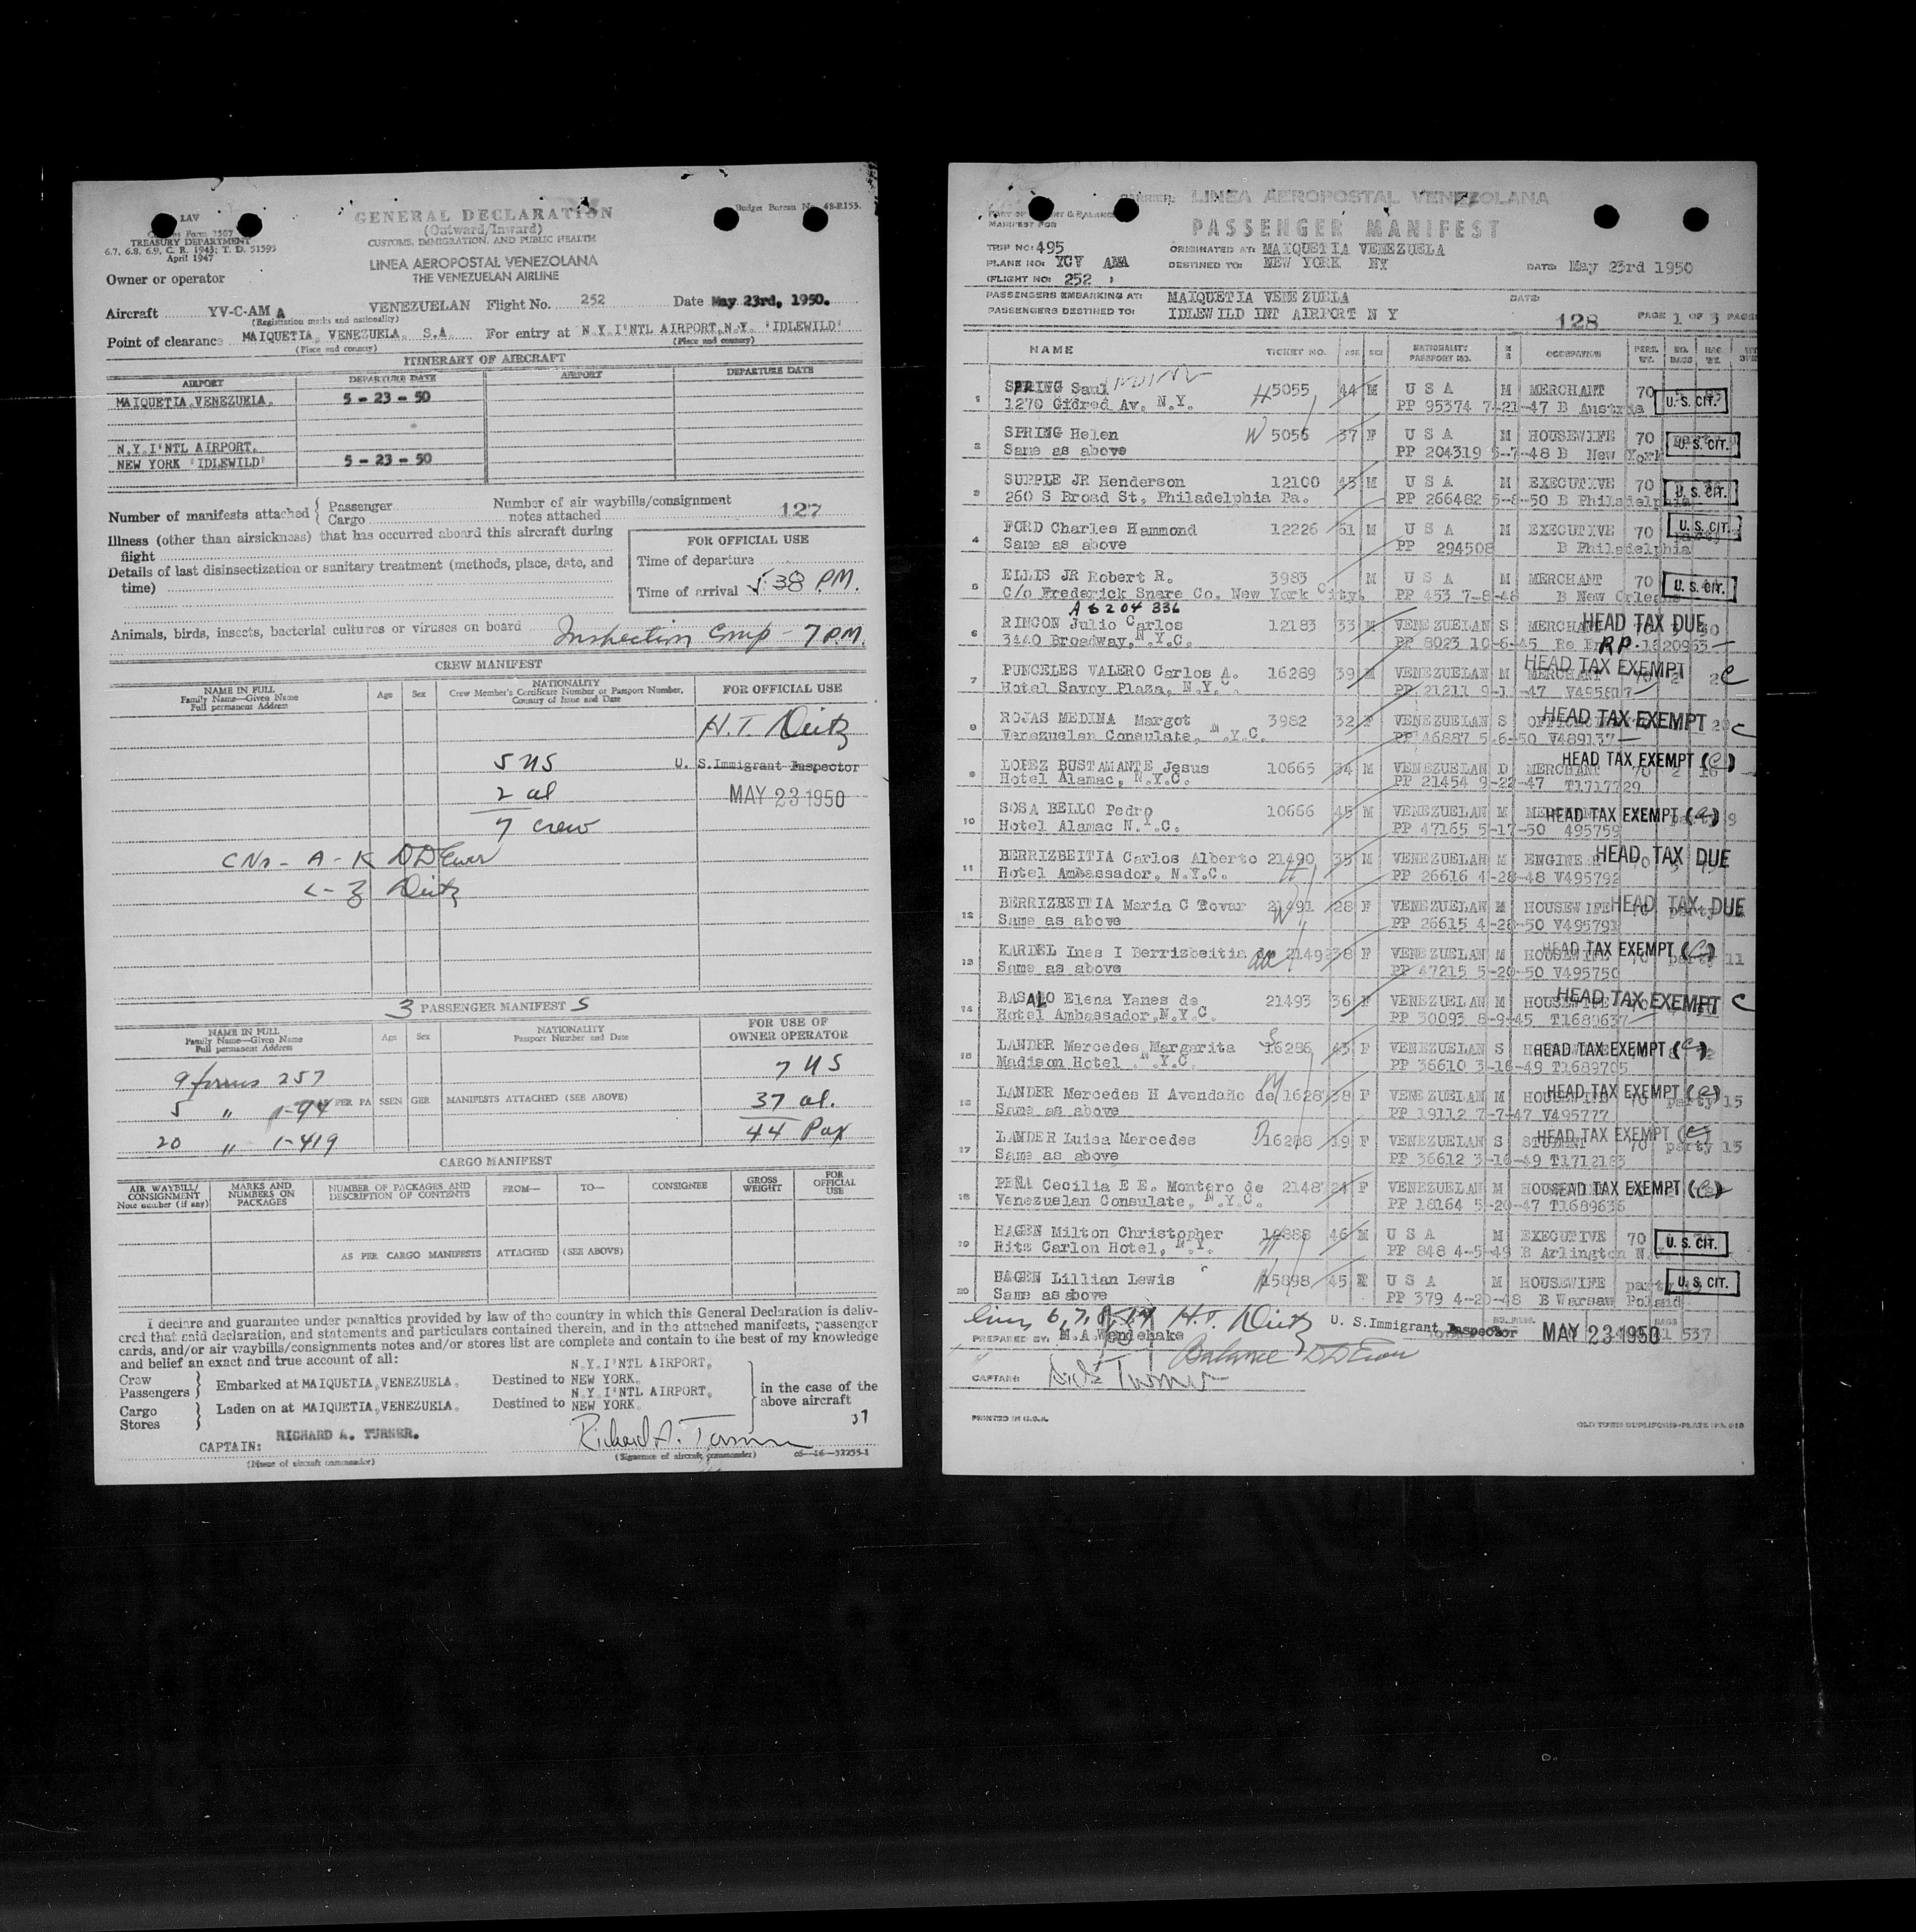 LAV
Customs Form 7507
TREASURY DEPARTMENT
6.7, 6.8, 6.9, C. R. 1943; T. D. 51593
April 1947
GENERAL DECLARATION
(Outward/Inward)
CUSTOMS, IMMIGRATION, AND PUBLIC HEALTH
Budget Bureau No. 48-R153.
LINEA AEROPOSTAL VENEZOLANA
THE VENEZUELAN AIRLINE
Owner or operator
Aircraft YV-C-AM A VENEZUELAN Flight No. 252 Date May 23rd, 1950.
(Registration marks and nationality)
Point of clearance MAIQUETIA, VENEZUELA, S.A. For entry at N.Y.I'NTL AIRPORT,N.Y. 'IDLEWILD'
(Place and country) (Place and country)
ITINERARY OF AIRCRAFT
AIRPORT DEPARTURE DATE AIRPORT DEPARTURE DATE
MAIQUETIA,VENEZUELA. 5-23-50
N.Y.I'NTL AIRPORT.
NEW YORK 'IDLEWILD' 5-23-50
Number of manifests attached { Passenger
Cargo
Number of air waybills/consignment
notes attached 127
Illness (other than airsickness) that has occurred aboard this aircraft during
flight
Details of last disinsectization or sanitary treatment (methods, place, date, and
time)
FOR OFFICIAL USE
Time of departure
Time of arrival 5:38 P.M.
Animals, birds, insects, bacterial cultures or viruses on board Inspection Comp - 7 P.M.
CREW MANIFEST
NAME IN FULL
Family Name—Given Name
Full permanent Address
Age Sex
NATIONALITY
Crew Member's Certificate Number or Passport Number,
Country of Issue and Date
FOR OFFICIAL USE
H.T. Deitz
5 US U. S.Immigrant Inspector
2 al MAY 23 1950
7 crew
A-K
L-Z Deitz
3 PASSENGER MANIFEST S
NAME IN FULL
Family Name—Given Name
Full permanent Address
Age Sex
NATIONALITY
Passport Number and Date
FOR USE OF
OWNER OPERATOR
9 forms 257 7 US
5 " 1-94 AS PER PASSENGER MANIFESTS ATTACHED (SEE ABOVE) 37 al.
20 " I-419 44 Pax
CARGO MANIFEST
AIR WAYBILL/
CONSIGNMENT
Note number (if any)
MARKS AND
NUMBERS ON
PACKAGES
NUMBER OF PACKAGES AND
DESCRIPTION OF CONTENTS
FROM— TO— CONSIGNEE
GROSS
WEIGHT
FOR
OFFICIAL
USE
AS PER CARGO MANIFESTS ATTACHED (SEE ABOVE)
I declare and guarantee under penalties provided by law of the country in which this General Declaration is deliv-
ered that said declaration, and statements and particulars contained therein, and in the attached manifests, passenger
cards, and/or air waybills/consignments notes and/or stores list are complete and contain to the best of my knowledge
and belief an exact and true account of all:
Crew
Passengers } Embarked at MAIQUETIA,VENEZUELA. Destined to N.Y.I'NTL AIRPORT, NEW YORK.
Cargo
Stores } Laden on at MAIQUETIA,VENEZUELA. Destined to N.Y.I'NTL AIRPORT, NEW YORK.
in the case of the
above aircraft
37
CAPTAIN: RICHARD A. TURNER.
(Name of aircraft commander)
Richard A. Turner
(Signature of aircraft commander) c6—16—52255-1
CARRIER: LINEA AEROPOSTAL VENEZOLANA
PART OF WEIGHT & BALANCE
MANIFEST FOR
PASSENGER MANIFEST
TRIP NO: 495 ORIGINATED AT: MAIQUETIA VENEZUELA
PLANE NO: YCV AMA DESTINED TO: NEW YORK NY DATE: May 23rd 1950
(FLIGHT NO: 252 )
PASSENGERS EMBARKING AT: MAIQUETIA VENEZUELA DATE:
PASSENGERS DESTINED TO: IDLEWILD INT AIRPORT N Y 128 PAGE 1 OF 3 PAGES
NAME TICKET NO. AGE SEX NATIONALITY PASSPORT NO. M S OCCUPATION PERS. WT. NO. BAGS BAG WT.
1 SPRING Saul H 5055 44 M U S A M MERCHANT 70 U. S. CIT.
1270 Gidred Av. N.Y. PP 95374 7-21-47 B Austria
2 SPRING Helen W 5056 37 F U S A M HOUSEWIFE 70 U. S. CIT.
Same as above PP 204319 5-7-48 B New York
3 SUPPLE JR Henderson 12100 45 M U S A M EXECUTIVE 70 U. S. CIT.
260 S Broad St, Philadelphia Pa. PP 266482 5-8-50 B Philadelphia
4 FORD Charles Hammond 12226 51 M U S A M EXECUTIVE 70 U. S. CIT.
Same as above PP 294508 B Philadelphia
5 ELLIS JR Robert R. 3983 M U S A M MERCHANT 70 U. S. CIT.
C/o Frederick Snare Co, New York City. PP 453 7-8-48 B New Orleans
A 6204 336
6 RINCON Julio Carlos 12183 33 M VENEZUELAN S MERCHANT HEAD TAX DUE
3440 Broadway, N.Y.C. PP 8023 10-6-45 RP. 1620963
7 PUNCELES VALERO Carlos A. 16289 39 M VENEZUELAN M MERCHANT HEAD TAX EXEMPT C
Hotel Savoy Plaza, N.Y. C PP 21211 9-1 -47 V495817
8 ROJAS MEDINA Margot 3982 32 F VENEZUELAN S HEAD TAX EXEMPT C
Venezuelan Consulate, N.Y.C. PP 46887 5-6-50 V489137
9 LOPEZ BUSTAMANTE Jesus 10665 34 M VENEZUELAN D MERCHANT 70 2 16 HEAD TAX EXEMPT (C)
Hotel Alamac, N.Y.C. PP 21454 9-22-47 T1717729
10 SOSA BELLO Pedro 10666 45 M VENEZUELAN M HEAD TAX EXEMPT (C) 9
Hotel Alamac N.Y.C. PP 47165 5-17-50 495759
11 BERRIZBEITIA Carlos Alberto 21490 35 M VENEZUELAN M ENGINEER HEAD TAX DUE
Hotel Ambassador, N.Y.C. H PP 26616 4-28-48 V495792
12 BERRIZBEITIA Maria C Tovar 21491 28 F VENEZUELAN M HOUSEWIFE HEAD TAX DUE
Same as above W PP 26615 4-28-50 V495791
13 KARDEL Ines I Berrizbeitia de 2149 38 F VENEZUELAN M HOUSEWIFE HEAD TAX EXEMPT (C) party 11
Same as above PP 47215 5-20-50 V495750
14 BASALO Elena Yanes de 21493 36 F VENEZUELAN M HOUSEWIFE HEAD TAX EXEMPT C
Hotel Ambassador,N.Y.C. PP 30093 8-9-45 T1689637
15 LANDER Mercedes Margarita 16286 43 F VENEZUELAN S HEAD TAX EXEMPT (C)
Madison Hotel N.Y.C. PP 38610 3-16-49 T1689705
16 LANDER Mercedes H Avendaño de 1628 38 F VENEZUELAN M HOUSEWIFE HEAD TAX EXEMPT (C) 70 party 15
Same as above PP 19112 7-7-47 V495777
17 LANDER Luisa Mercedes D 16288 19 F VENEZUELAN S STUDENT HEAD TAX EXEMPT (C) 70 party 15
Same as above PP 36612 3-16-49 T1712163
18 PEÑA Cecilia E E. Montero de 2148 24 F VENEZUELAN M HOUSEWIFE HEAD TAX EXEMPT (C)
Venezuelan Consulate, N.Y.C. PP 18164 5-20-47 T1689636
19 HAGEN Milton Christopher 46 M U S A M EXECUTIVE 70 U. S. CIT.
Ritz Carlon Hotel, N.Y. H PP 848 4-5-49 B Arlington N.
20 HAGEN Lillian Lewis 15898 45 F U S A M HOUSEWIFE party U. S. CIT.
Same as above PP 379 4-20-48 B Warsaw Poland
Lines 6,7,8,14 H.T. Deitz U. S.Immigrant Inspector MAY 23 1950 537
PREPARED BY: M.A.Wendehake
Balance
CAPTAIN: Turner
PRINTED IN U.S.A. OLD TOWN DUPLIFORM-PLATE NO. 910